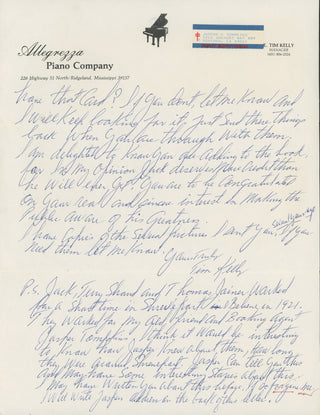 Allegrezza
Piano Company
226 Highway 51 North/Ridgeland, Mississippi 39157
TIM KELLY
MANAGER
(601) 856-2524
have that Card? If you don't, let me know and
I will keep looking for it, Just send these things
back when you are through with them,
I am delighted to know you are adding to the book,
for in my opinion Jack deserves more credit than
he will ever get. You are to be congratulated
on your real and sincere interest in making the
People aware of his Greatness.
I have copies of the pictures I sent you, if you
need them let me know
Yours truly
Tim Kelly
P.S. Jack, Terry Shand and T Homas Joiner worked
for a short time in Shreveport I believe in 1921.
They worked for my old friend and Booking Agent
Jasper Tompkins. I think it would be interesting
to know how Jasper knew about them, how long
they were around Shreveport. Jasper can tell you this
and may have some interesting stories about this.
I may have written you about this before, if so forgive me.
I will write Jaspers address on the back of this letter.